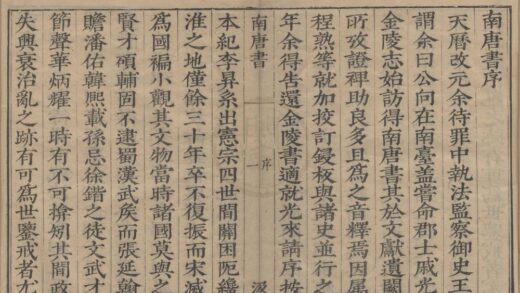 南唐書序
天曆改元余待罪中執法監察御史王
謂余曰公向在南臺蓋嘗命郡士戚光
金陵志始訪得南唐書其於文獻遺闕
所攷證裨助良多且爲之音釋焉因屬
程熟等就加挍訂鋟板與諸史並行之
年余得告還金陵書適就光來請序按
南唐書 序 一 汲
本紀李昪系出憲宗四世間關困阨纔
淮之地僅餘三十年卒不復振而宋滅
爲國褊小觀其文物當時諸國莫與之
賢才碩輔固不逮蜀漢武矦而張延翰
贍潘佑韓熙載孫忌徐鍇之徒文武才
節聲華炳耀一時有不可揜矧其間政
失興衰治亂之跡有可爲世鑒戒者尤